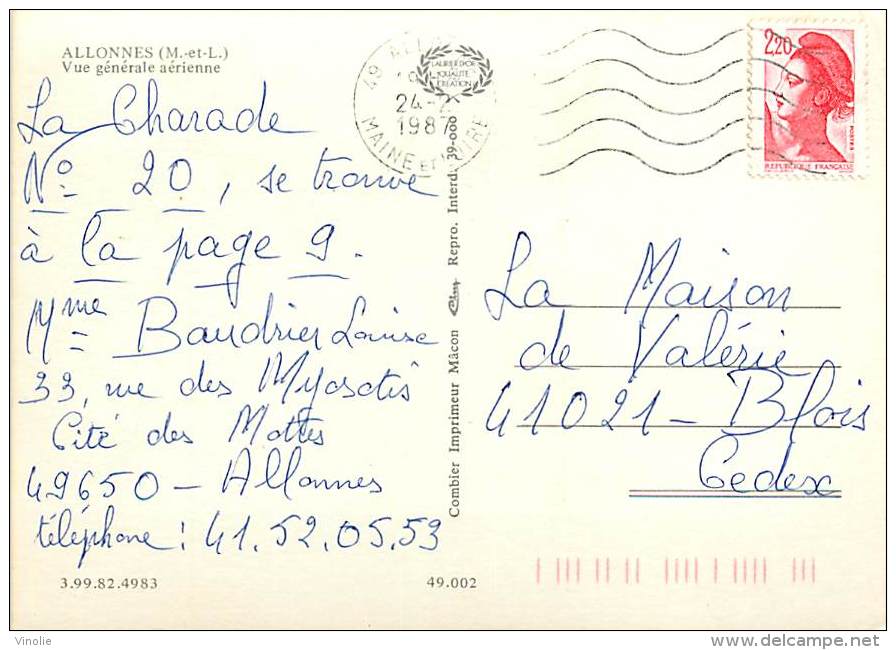 ALLONNES (M.-et-L.)
Vue générale aérienne
La Charade
No 20, se trouve
à la page 9.
Mme Baudrier Louise
33, rue des Myosotis
Cité des Mottes
49650 - Allonnes
téléphone : 41.52.05.53
3.99.82.4983
49.002
Combier Imprimeur Mâcon
Repro. Interd. 39-000
LAURIER D'OR
QUALITÉ
CRÉATION
49 ALL
24-2
1987
MAINE ET LOIRE
2,20
POSTES
REPUBLIQUE FRANÇAISE
La Maison
de Valérie
41021 - Blois
Cedex
Vinolie
http://www.delcampe.net